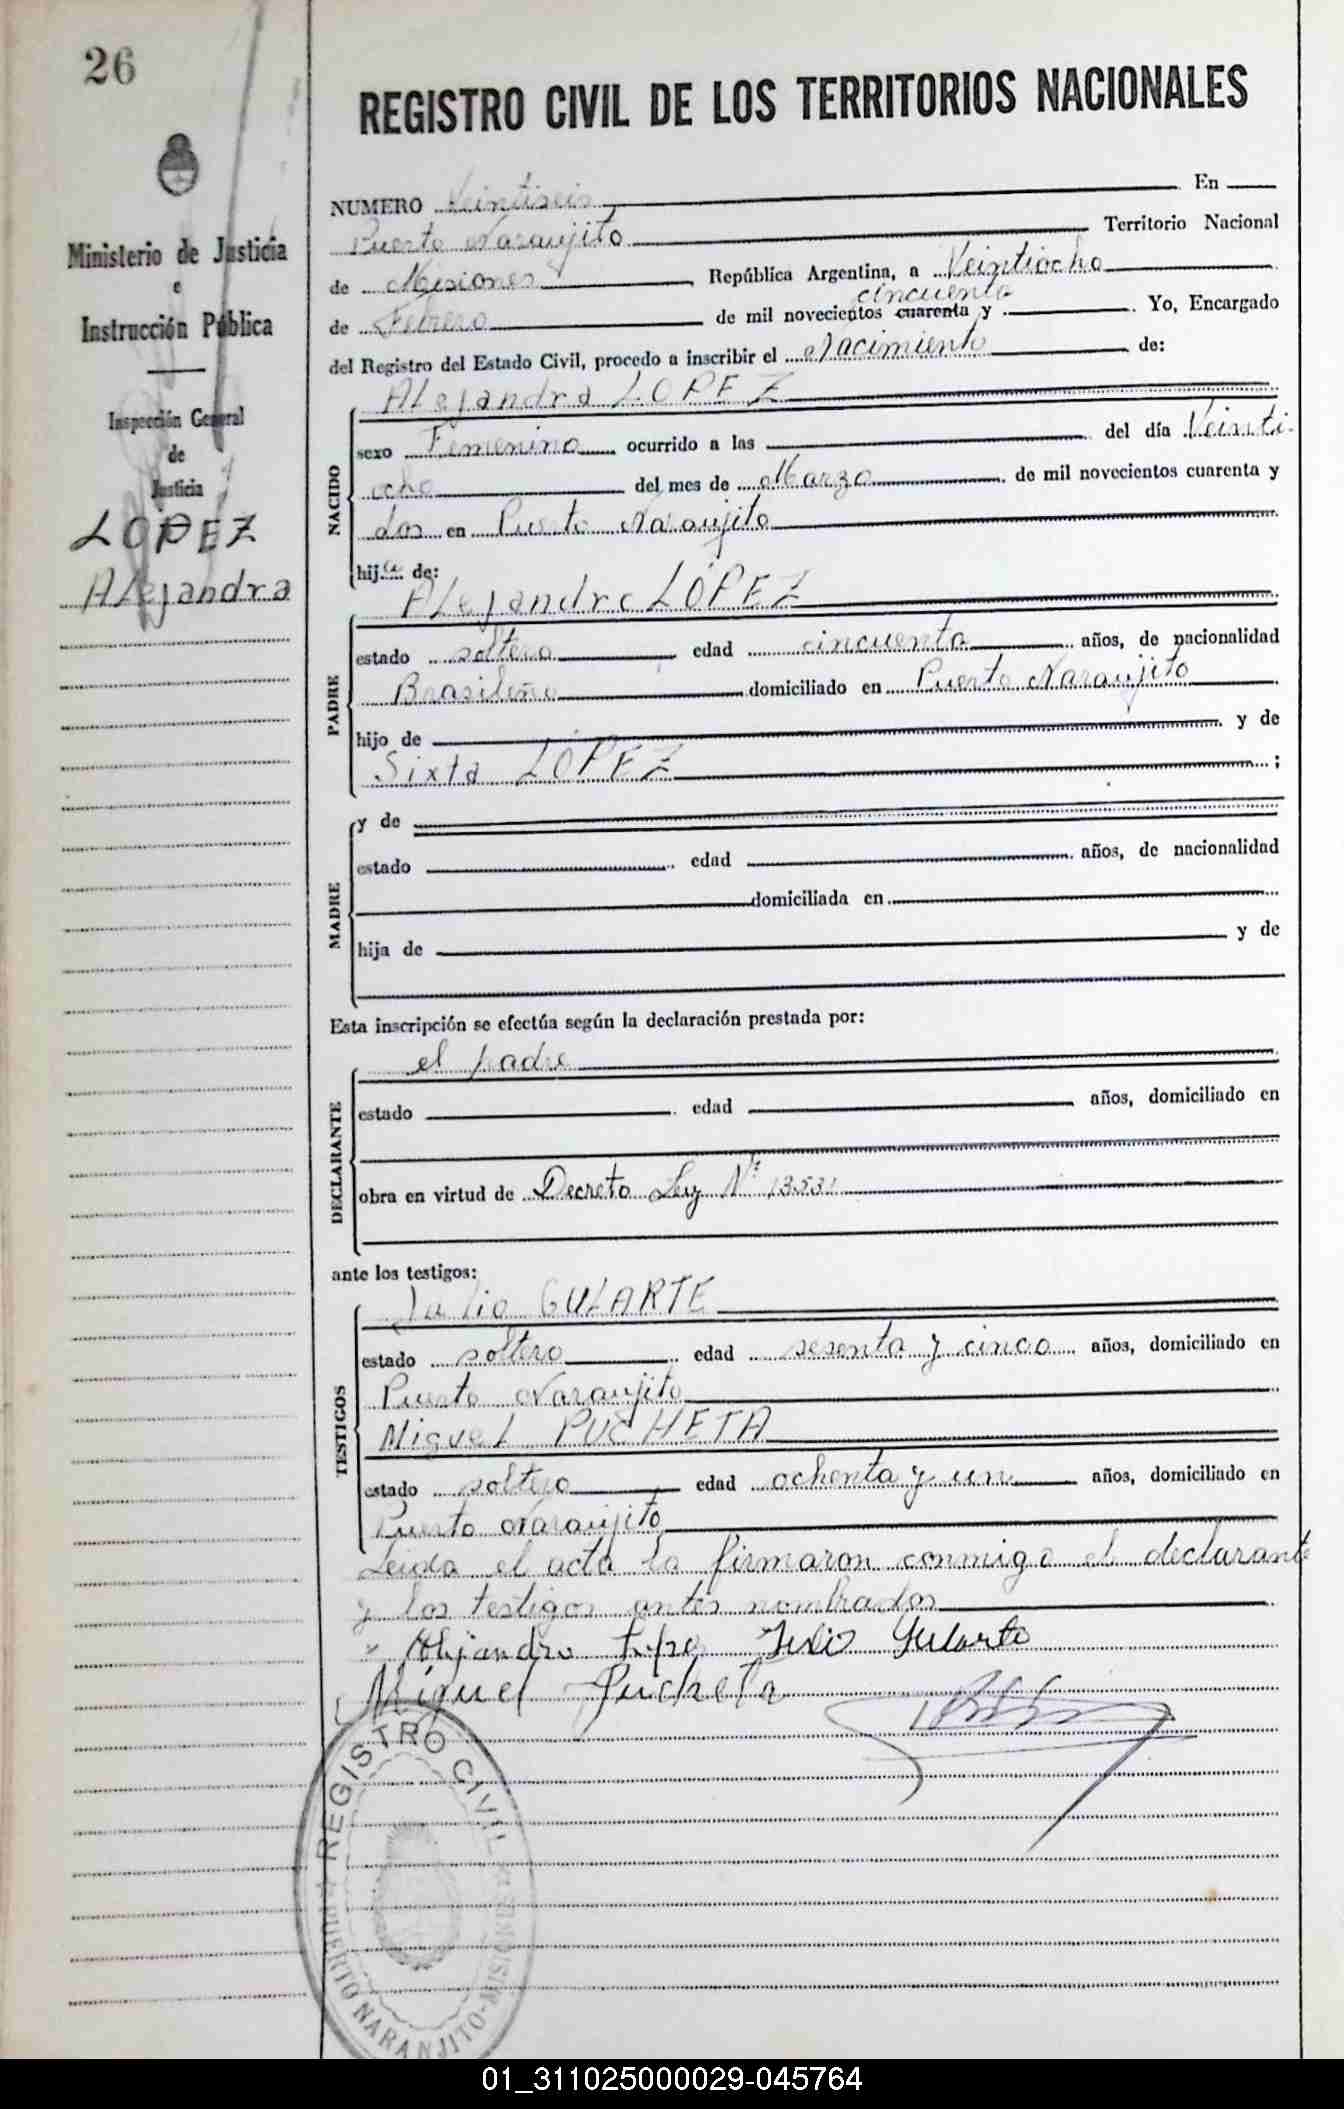 26
REGISTRO CIVIL DE LOS TERRITORIOS NACIONALES
Ministerio de Justicia
e
Instrucción Pública
Inspección General
de
Justicia
LOPEZ
Alejandra
NUMERO Veintiseis En
Puerto Naranjito Territorio Nacional
de Misiones República Argentina, a Veintiocho
de Febrero de mil novecientos cuarenta y cincuenta Yo, Encargado
del Registro del Estado Civil, procedo a inscribir el Nacimiento de:
NACIDO
Alejandra LOPEZ
sexo Femenino ocurrido a las del día Veinti-
ocho del mes de Marzo de mil novecientos cuarenta y
dos en Puerto Naranjito
hija de:
PADRE
Alejandro LÓPEZ
estado soltero edad cincuenta años, de nacionalidad
Brasileño domiciliado en Puerto Naranjito
hijo de y de
Sixta LÓPEZ ;
MADRE
y de
estado edad años, de nacionalidad
domiciliada en
hija de y de
Esta inscripción se efectúa según la declaración prestada por:
DECLARANTE
el padre
estado edad años, domiciliado en
obra en virtud de Decreto Ley Nº 13531
ante los testigos:
TESTIGOS
Julio GULARTE
estado soltero edad sesenta y cinco años, domiciliado en
Puerto Naranjito
Miguel PUCHETA
estado soltero edad ochenta y un años, domiciliado en
Puerto Naranjito
Leida el acta la firmaron conmigo el declarante
y los testigos antes nombrados
Alejandro Julio Gularte
Miguel Pucheta
REGISTRO CIVIL
PUERTO NARANJITO-MISIONES
01_311025000029-045764